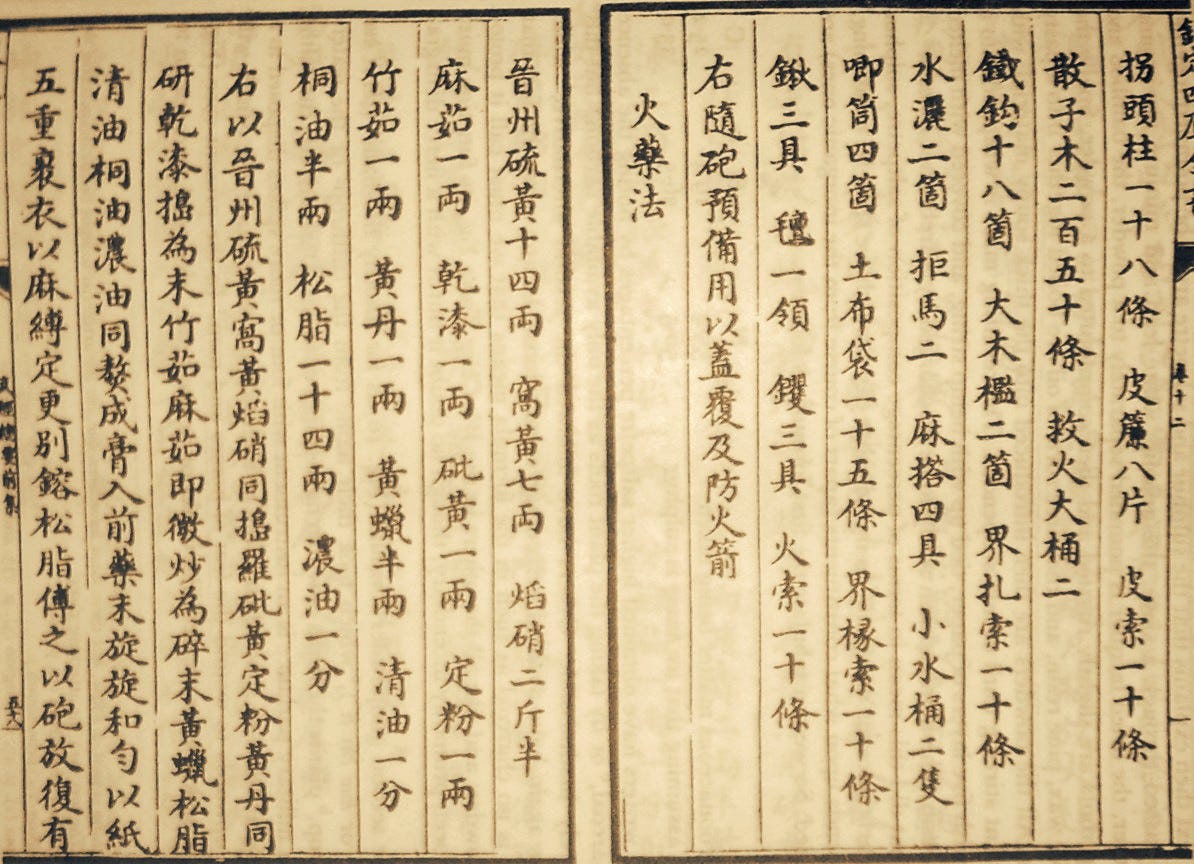 欽定四庫全書
卷十二
拐頭柱一十八條 皮簾八片 皮索一十條
散子木二百五十條 救火大桶二
鐵鈎十八箇 大木檻二箇 界扎索一十條
水濕二箇 拒馬二 麻搭四具 小水桶二隻
唧筒四箇 土布袋一十五條 界椽索一十條
鍬三具 氊一領 钁三具 火索一十條
右隨砲預備用以蓋覆及防火箭
火藥法
晉州硫黃十四兩 窩黃七兩 焰硝二斤半
麻茹一兩 乾漆一兩 砒黃一兩 定粉一兩
竹茹一兩 黃丹一兩 黃蠟半兩 清油一分
桐油半兩 松脂一十四兩 濃油一分
右以晉州硫黃窩黃焰硝同搗羅砒黃定粉黃丹同
研乾漆搗為末竹茹麻茹即微炒為碎末黃蠟松脂
清油桐油濃油同熬成膏入前藥末旋旋和勻以紙
五重裹衣以麻縛定更別鎔松脂傅之以砲放復有
武經總要前集
五十八